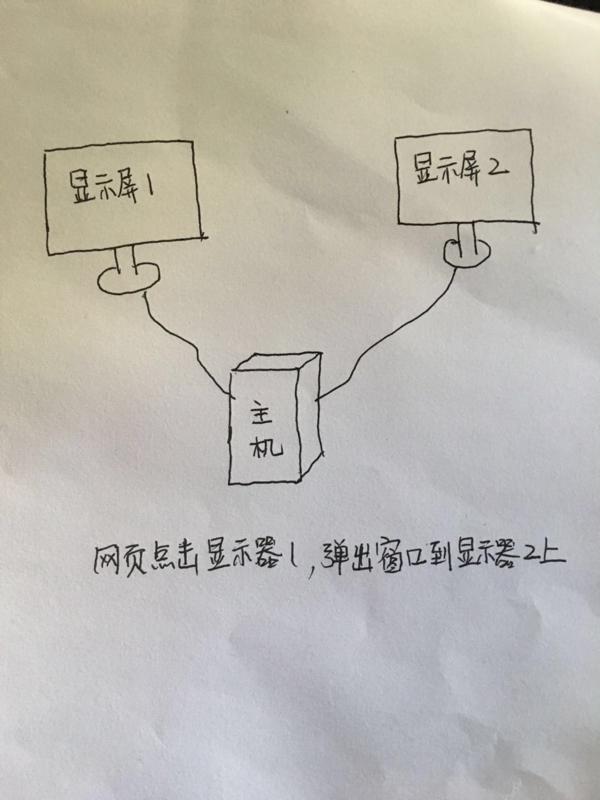 显示屏1
显示屏2
主
机
网页点击显示器1,弹出窗口到显示器2上